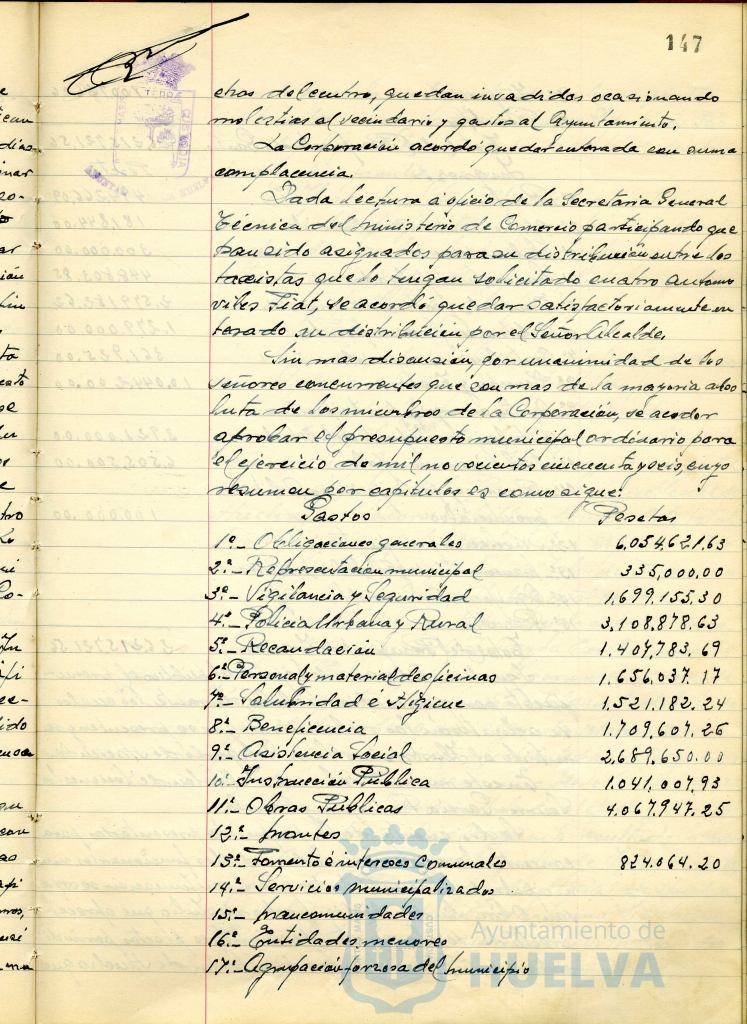 147
otros del centro, quedan invadidos ocasionando
molestias al vecindario y gastos al Ayuntamiento.
La Corporación acordó quedar enterada con suma
complacencia.
Dada lectura á oficio de la Secretaria General
Técnica del Ministerio de Comercio participando que
han sido asignados para su distribución entre los
taxistas que lo tengan solicitado cuatro automo
viles Fiat, se acordó quedar satisfactoriamente en
terado su distribución por el Señor Alcalde.
Sin mas discusión, por unanimidad de los
señores concurrentes que son mas de la mayoria abso
luta de los miembros de la Corporación, se acordor
aprobar el presupuesto municipal ordinario para
el ejercicio de mil novecientos cincuenta y seis, cuyo
resumen por capitulos es como sigue:
Gastos Pesetas
1º.- Obligaciones generales 6,054,621,63
2º.- Representación municipal 335,000.00
3º.- Vigilancia y Seguridad 1,699.155,30
4º.- Policia Urbana y Rural 3,108,878.63
5º.- Recaudación 1.407,783,69
6º Personal y material de oficinas 1,656,037.17
7º.- Salubridad é Higiene 1,521.182.24
8º.- Beneficencia 1.709,607.26
9º.- Asistencia Social 2,689,650.00
10º Instrucción Pública 1.041,007,93
11º.- Obras Públicas 4.067,947.25
12º.- Montes
13º.- Fomento é intereses Comunales 824.064.20
14º.- Servicios municipalizados
15º.- Mancomunidades
16º.- Entidades menores
17º.- Agrupación forzosa del Municipio
Ayuntamiento de
HUELVA